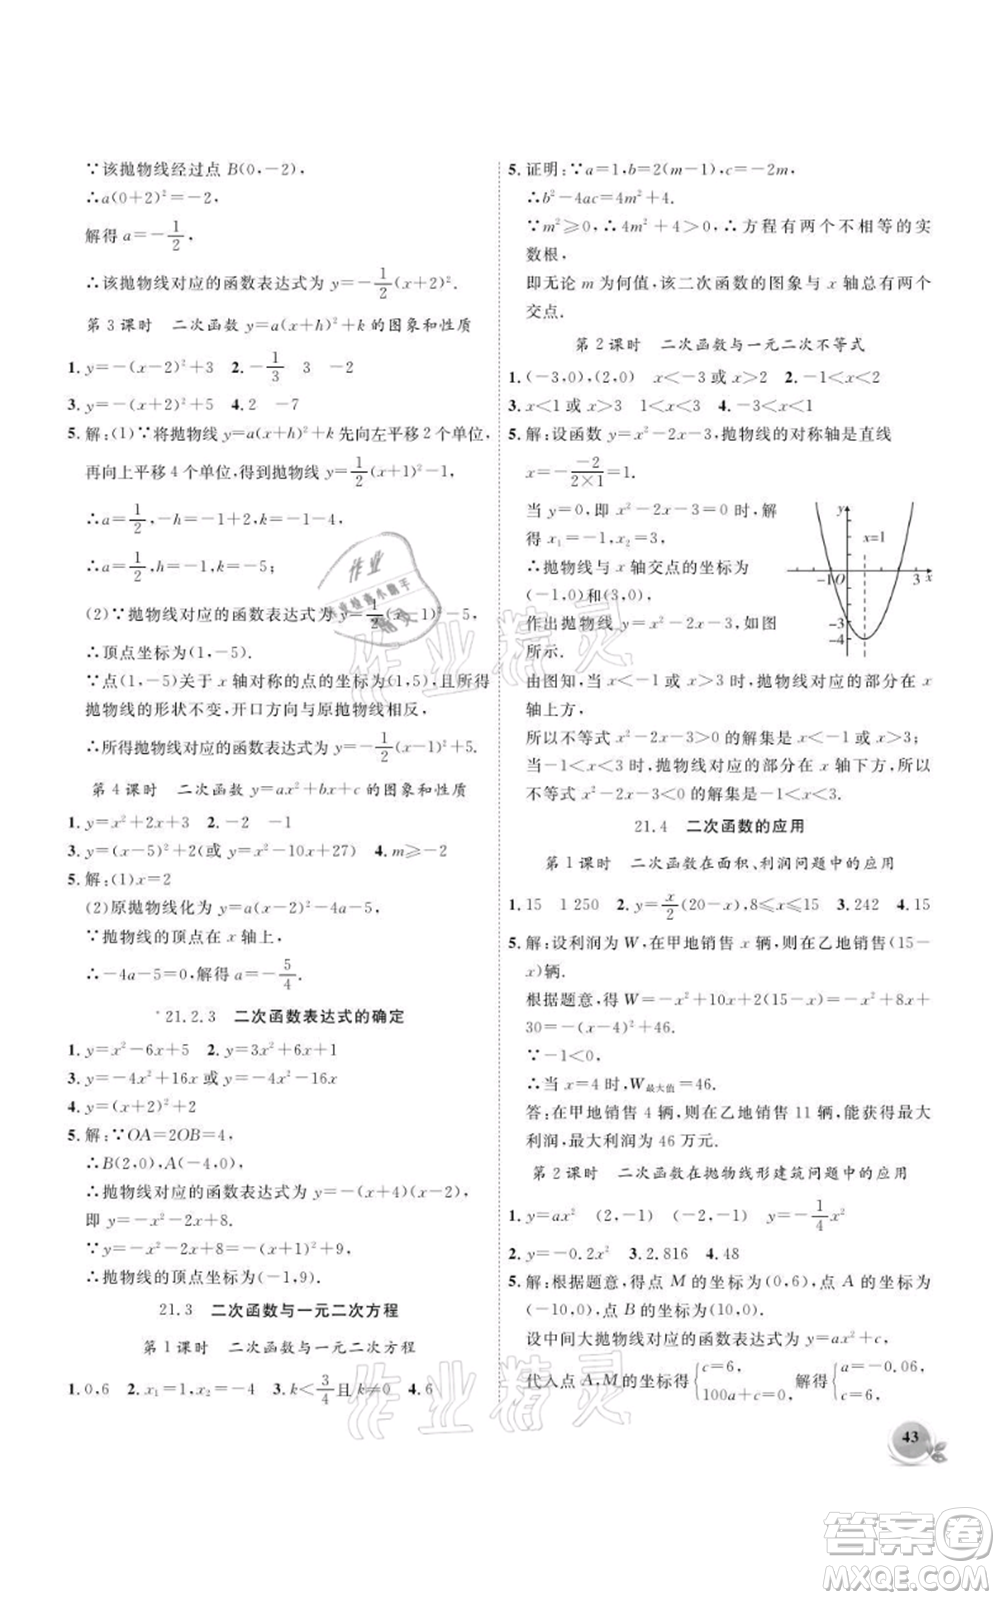 ∵该抛物线经过点 B(0,-2),
∴a(0+2)²=-2,
解得 a=-1/2,
∴该抛物线对应的函数表达式为 y=-1/2(x+2)².
第3课时 二次函数 y=a(x+h)²+k 的图象和性质
1. y=-(x-2)²+3 2. -1/3 3 -2
3. y=-(x+2)²+5 4. 2 -7
5. 解:(1)∵将抛物线 y=a(x+h)²+k 先向左平移2个单位,
再向上平移4个单位,得到抛物线 y=1/2(x+1)²-1,
∴a=1/2,-h=-1+2,k=-1-4,
∴a=1/2,h=-1,k=-5;
(2)∵抛物线对应的函数表达式为 y=1/2(x-1)²-5,
∴顶点坐标为(1,-5).
∵点(1,-5)关于 x 轴对称的点的坐标为(1,5),且所得
抛物线的形状不变,开口方向与原抛物线相反,
∴所得抛物线对应的函数表达式为 y=-1/2(x-1)²+5.
第4课时 二次函数 y=ax²+bx+c 的图象和性质
1. y=x²+2x+3 2. -2 -1
3. y=(x-5)²+2(或 y=x²-10x+27) 4. m≥-2
5. 解:(1)x=2
(2)原抛物线化为 y=a(x-2)²-4a-5.
∵抛物线的顶点在 x 轴上,
∴-4a-5=0,解得 a=-5/4.
21.2.3 二次函数表达式的确定
1. y=x²-6x+5 2. y=3x²+6x+1
3. y=-4x²+16x 或 y=-4x²-16x
4. y=(x+2)²+2
5. 解:∵OA=2OB=4,
∴B(2,0),A(-4,0),
∴抛物线对应的函数表达式为 y=-(x+4)(x-2),
即 y=-x²-2x+8.
∵y=-x²-2x+8=-(x+1)²+9,
∴抛物线的顶点坐标为(-1,9).
21.3 二次函数与一元二次方程
第1课时 二次函数与一元二次方程
1. 0,6 2. x₁=1,x₂=-4 3. k<3/4且 k≠0 4. 6
5. 证明:∵a=1,b=2(m-1),c=-2m,
∴b²-4ac=4m²+4.
∵m²≥0,∴4m²+4>0,∴方程有两个不相等的实
数根,
即无论 m 为何值,该二次函数的图象与 x 轴总有两个
交点.
第2课时 二次函数与一元二次不等式
1. (-3,0),(2,0) x<-3 或 x>2 2. -1<x<2
3. x<1 或 x>3 1<x<3 4. -3<x<1
5. 解:设函数 y=x²-2x-3,抛物线的对称轴是直线
x=-(-2)/(2×1)=1.
当 y=0,即 x²-2x-3=0时,解
得 x₁=-1,x₂=3,
∴抛物线与 x 轴交点的坐标为
(-1,0)和(3,0).
作出抛物线 y=x²-2x-3,如图
所示.
y
x=1
-1 O 3 x
-3
-4
由图知,当 x<-1 或 x>3 时,抛物线对应的部分在 x
轴上方,
所以不等式 x²-2x-3>0 的解集是 x<-1 或 x>3;
当-1<x<3时,抛物线对应的部分在 x 轴下方,所以
不等式 x²-2x-3<0 的解集是-1<x<3.
21.4 二次函数的应用
第1课时 二次函数在面积、利润问题中的应用
1. 15 1 250 2. y=x/2(20-x),8≤x≤15 3. 242 4. 15
5. 解:设利润为 W,在甲地销售 x 辆,则在乙地销售(15-
x)辆.
根据题意,得 W=-x²+10x+2(15-x)=-x²+8x+
30=-(x-4)²+46.
∵-1<0,
∴当 x=4时,W最大值=46.
答:在甲地销售 4 辆,则在乙地销售 11 辆,能获得最大
利润,最大利润为 46 万元.
第2课时 二次函数在抛物线形建筑问题中的应用
1. y=ax² (2,-1) (-2,-1) y=-1/4x²
2. y=-0.2x² 3. 2.816 4. 48
5. 解:根据题意,得点 M 的坐标为(0,6),点 A 的坐标为
(-10,0),点 B 的坐标为(10,0).
设中间大抛物线对应的函数表达式为 y=ax²+c,
代入点 A,M 的坐标得{c=6, 100a+c=0, 解得{a=-0.06, c=6,
43
作业精灵
作业精灵
答案圈
MXQE.COM